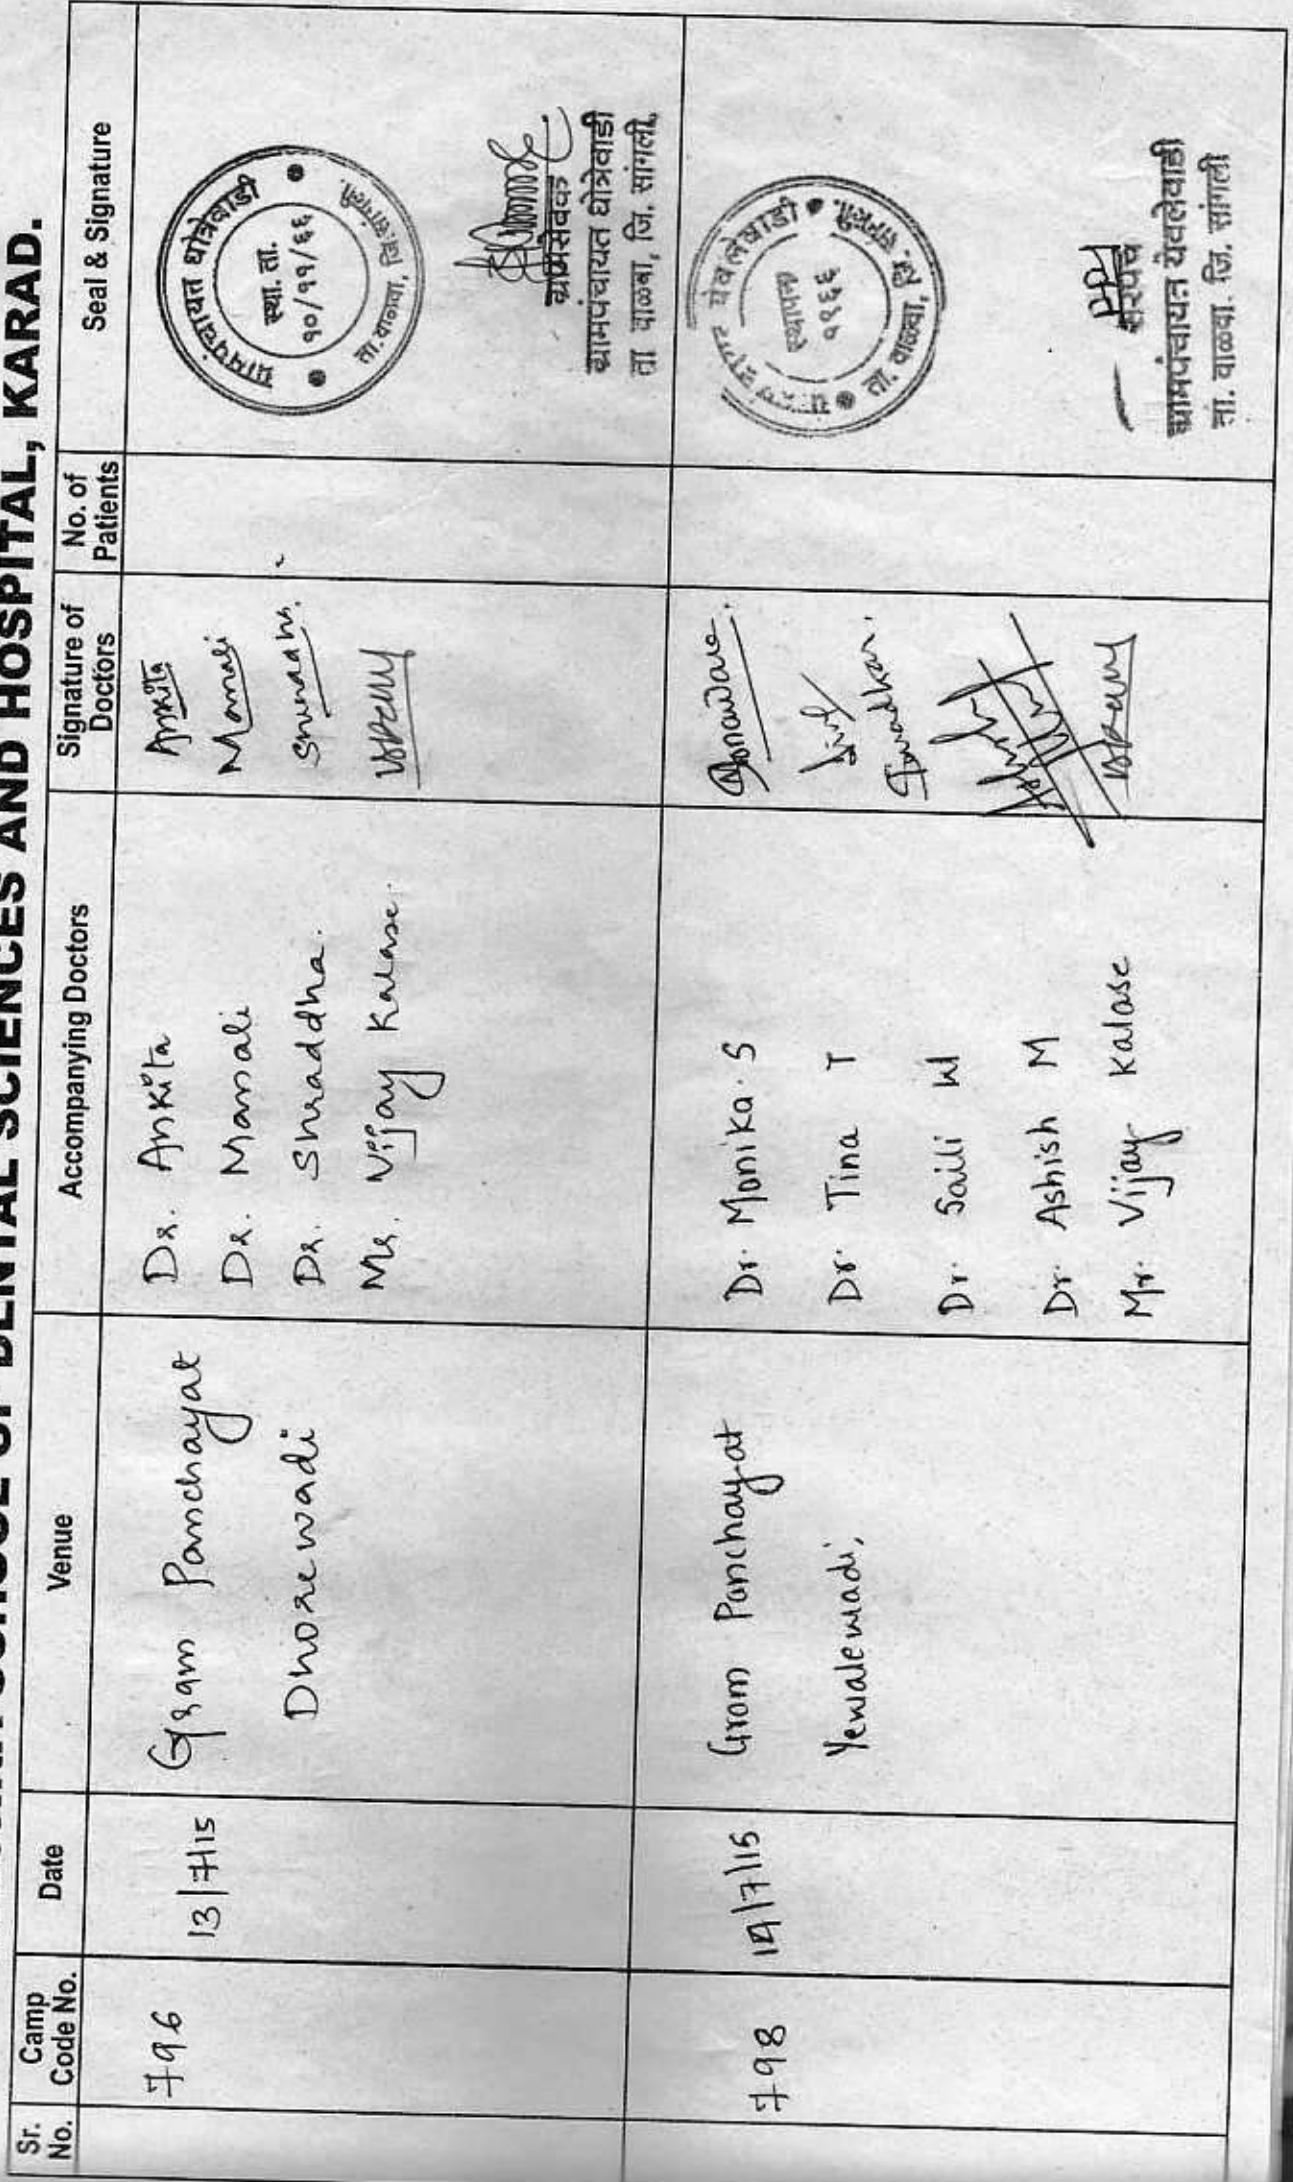 SCHOOL OF DENTAL SCIENCES AND HOSPITAL, KARAD.
Sr. No.
Camp Code No.
Date
Venue
Accompanying Doctors
Signature of Doctors
No. of Patients
Seal & Signature
796
13/7/15
Gram Panchayat
Dhorewadi
Dr. Ankita
Dr. Manali
Dr. Shraddha.
Mr. Vijay Kalase.
Ankita
Manali
ग्रामपंचायत धोत्रेवाडी
स्था. ता.
१०/११/६६
ता. वाळवा, जि. सांगली.
ग्रामसेवक
ग्रामपंचायत धोत्रेवाडी
ता वाळवा, जि. सांगली.
798
14/7/15
Gram Panchayat
Yewalewadi,
Dr. Monika. S
Dr. Tina T
Dr. Saili W
Dr. Ashish M
Mr. Vijay Kalase
येवलेवाडी
ता. वाळवा, जि. सांगली.
सरपंच
ग्रामपंचायत येवलेवाडी
ता. वाळवा. जि. सांगली